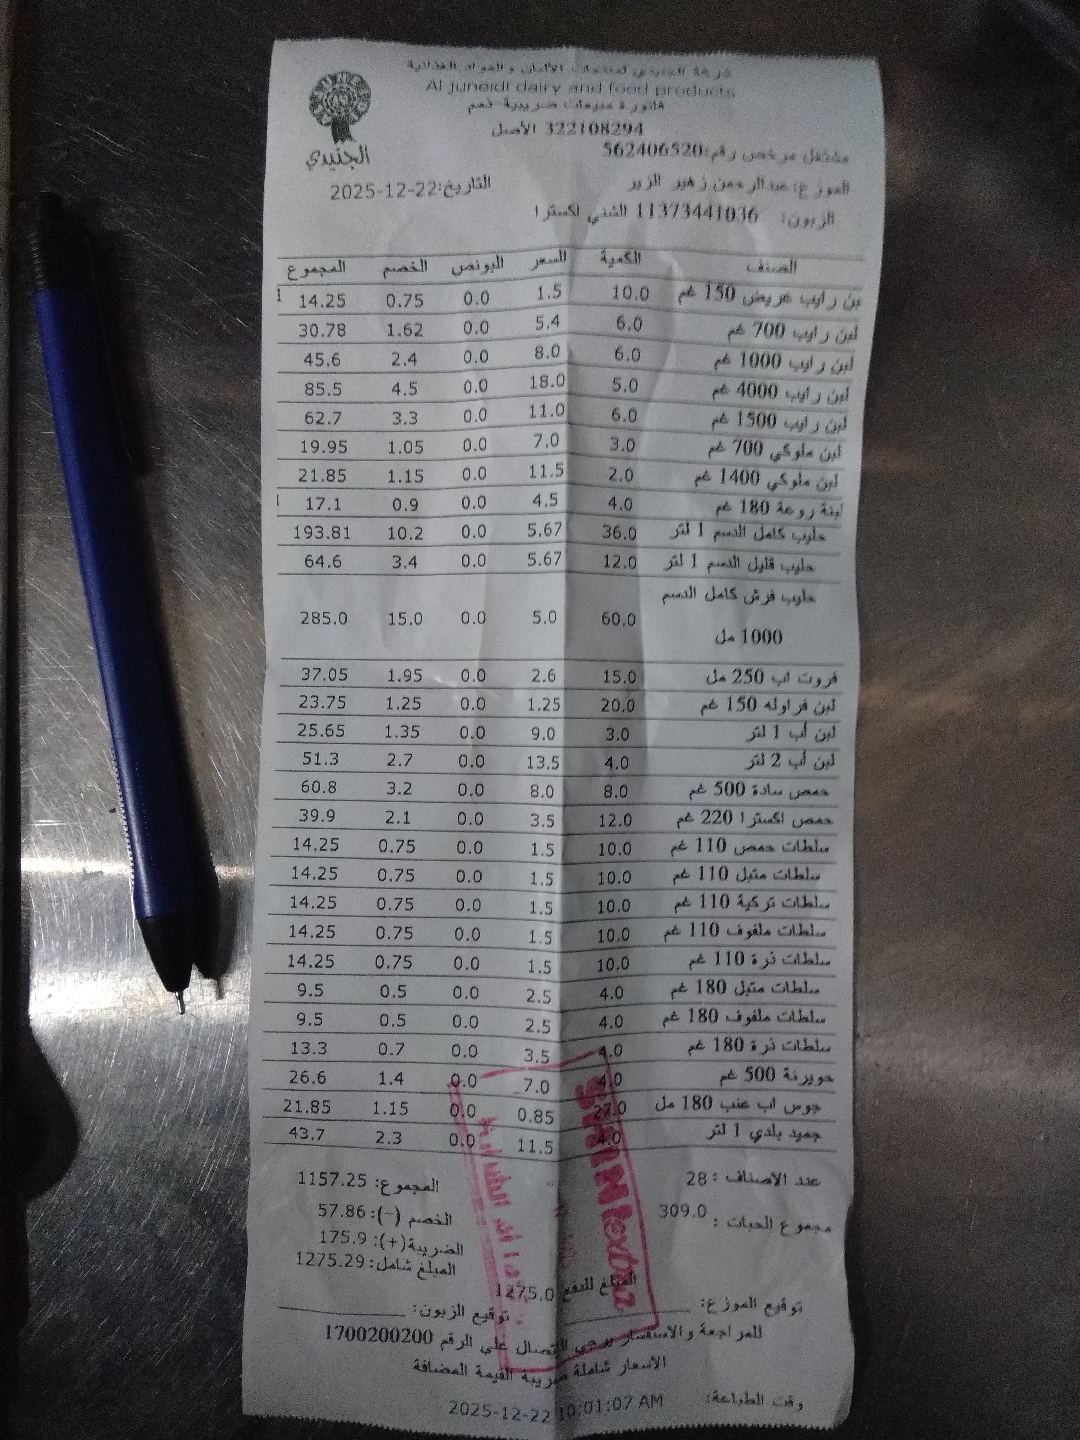 شركة الجنيدي لمنتجات الألبان والمواد الغذائية
Al juneidi dairy and food products
فاتورة مبيعات ضريبية-ذمم
322108294 الأصل
الجنيدي
مشتغل مرخص رقم:562406520
الموزع:عبدالرحمن زهير الزير التاريخ:22-12-2025
الزبون: 11373441036 الشني اكسترا
الصنف الكمية السعر البونص الخصم المجموع
بن رايب عريض 150 غم 10.0 1.5 0.0 0.75 14.25
لبن رايب 700 غم 6.0 5.4 0.0 1.62 30.78
لبن رايب 1000 غم 6.0 8.0 0.0 2.4 45.6
لبن رايب 4000 غم 5.0 18.0 0.0 4.5 85.5
لبن رايب 1500 غم 6.0 11.0 0.0 3.3 62.7
لبن ملوكي 700 غم 3.0 7.0 0.0 1.05 19.95
لبن ملوكي 1400 غم 2.0 11.5 0.0 1.15 21.85
لبنة روعة 180 غم 4.0 4.5 0.0 0.9 17.1
حليب كامل الدسم 1 لتر 36.0 5.67 0.0 10.2 193.81
حليب قليل الدسم 1 لتر 12.0 5.67 0.0 3.4 64.6
حليب فرش كامل الدسم
1000 مل 60.0 5.0 0.0 15.0 285.0
فروت اب 250 مل 15.0 2.6 0.0 1.95 37.05
لبن فراوله 150 غم 20.0 1.25 0.0 1.25 23.75
لبن أب 1 لتر 3.0 9.0 0.0 1.35 25.65
لبن أب 2 لتر 4.0 13.5 0.0 2.7 51.3
حمص سادة 500 غم 8.0 8.0 0.0 3.2 60.8
حمص اكسترا 220 غم 12.0 3.5 0.0 2.1 39.9
سلطات حمص 110 غم 10.0 1.5 0.0 0.75 14.25
سلطات متبل 110 غم 10.0 1.5 0.0 0.75 14.25
سلطات تركية 110 غم 10.0 1.5 0.0 0.75 14.25
سلطات ملفوف 110 غم 10.0 1.5 0.0 0.75 14.25
سلطات ذرة 110 غم 10.0 1.5 0.0 0.75 14.25
سلطات متبل 180 غم 4.0 2.5 0.0 0.5 9.5
سلطات ملفوف 180 غم 4.0 2.5 0.0 0.5 9.5
سلطات ذرة 180 غم 4.0 3.5 0.0 0.7 13.3
حويرنة 500 غم 4.0 7.0 0.0 1.4 26.6
جوس اب عنب 180 مل 27.0 0.85 0.0 1.15 21.85
جميد بلدي 1 لتر 4.0 11.5 0.0 2.3 43.7
عدد الاصناف :28 المجموع: 1157.25
مجموع الحبات : 309.0 الخصم (-):57.86
الضريبة(+): 175.9
المبلغ شامل: 1275.29
المبلغ للدفع 1275.0
توقيع الموزع: توقيع الزبون:
للمراجعة والاستفسار يرجى الاتصال على الرقم 1700200200
الأسعار شاملة ضريبة القيمة المضافة
وقت الطباعة: 2025-12-22 10:01:07 AM